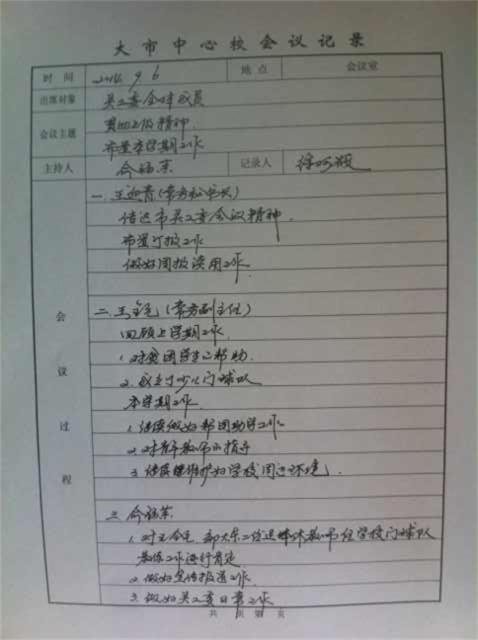 大市中心校会议记录
时 间 2016.9.6 地 点 会议室
出席对象 关工委全体成员
会议主题 贯彻上级精神
布置本学期工作
主持人 俞 记录人 徐
会议过程
一. 王迎青(常务秘书长)
传达市关工委会议精神.
布置订报工作
做好周报读用工作.
二. 王全屯(常务副主任)
回顾上学期工作.
1. 对贫困学生的帮助.
2. 成立了少儿门球队
本学期工作.
1. 继续做好帮困助学工作.
2. 对青年教师的指导
3. 继续维护好学校周边环境.
三. 俞
1. 对王全屯 二位退休教师任学校门球队
教练工作进行肯定
2. 做好宣传报道工作.
3. 做好关工委日常工作
共 页 第 页